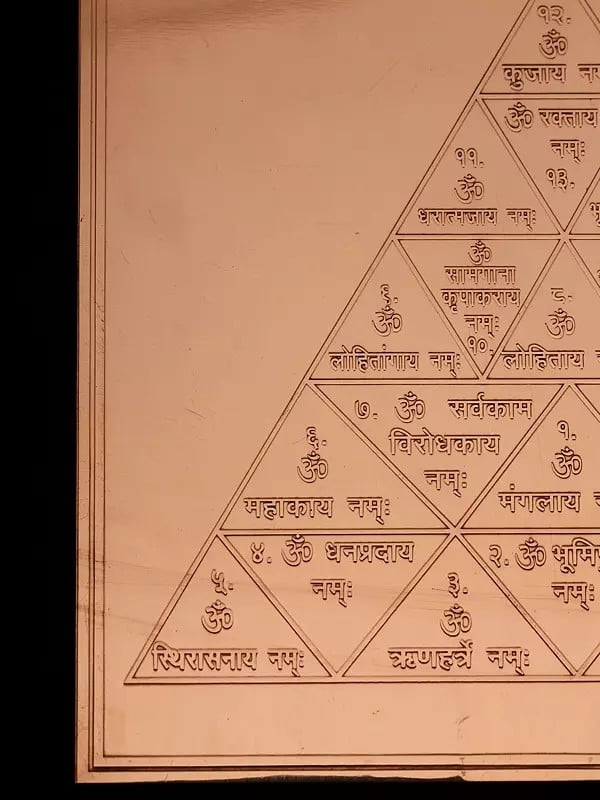 १२.
ॐ
कुजाय
ॐ रक्ताय
नम्ः
१३.
११.
ॐ
धरात्मजाय नम्ः
ॐ
सामगाना
कृपाकराय
नम्ः
१०.
ॐ
लोहितांगाय नम्ः
८.
ॐ
लोहिताय
७. ॐ सर्वकाम
विरोधकाय
नम्ः
६.
ॐ
महाकाय नम्ः
१.
ॐ
मंगलाय
४. ॐ धनप्रदाय
नम्ः
२. ॐ
नम्ः
५.
ॐ
स्थिरासनाय नम्ः
३.
ॐ
ऋणहर्त्रे नम्ः